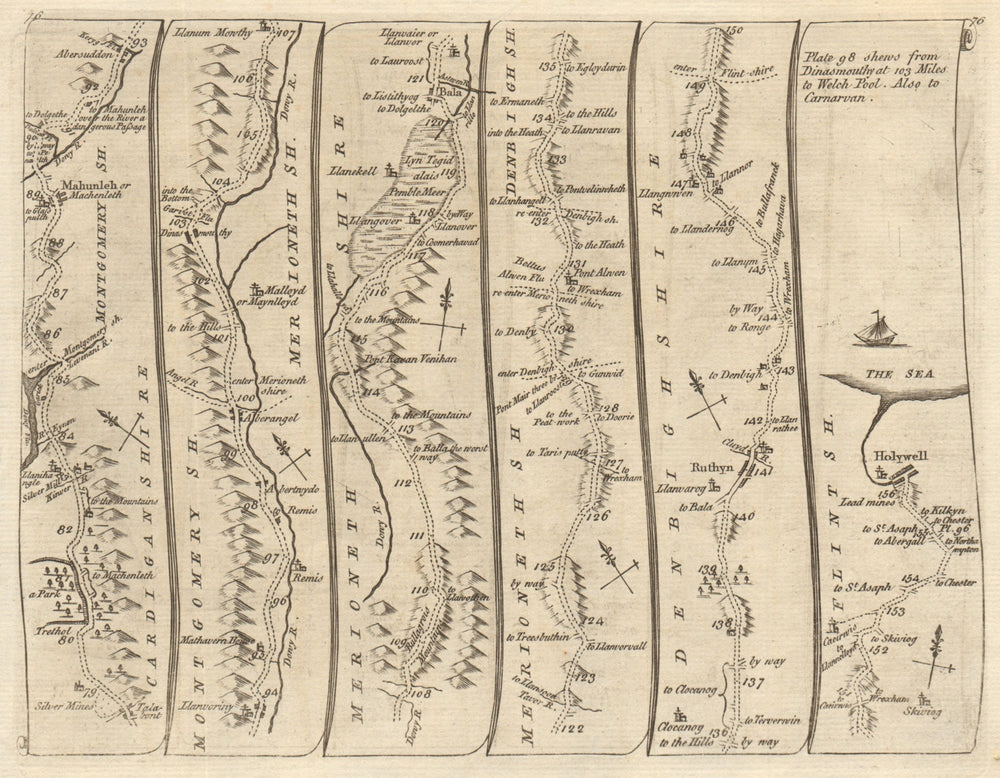 76
76
93
Abersuddon
92
to Dolgethe
to Mahunleh
over the River a
dangerous Passage
90
Dowy R.
89
Mahunleh or
Machenleth
MONTGOMERY SH.
88
87
86
enter
Montgomery
sh.
85
R. Kynan
84
Silver Mill
to the Mountains
82
81
to Machenleth
a Park
Trethol
80
79
Silver Mines
Tala-
bont
CARDIGANSHIRE
Llanum Mowthy
107
106
Dowy R.
105
104
into the
Bottom
Garibe
Flu
103
Dinas mouthy
102
Malloyd
or Maynlloyd
to the Hills
101
Angel R.
enter Merioneth
shire
100
Aberangel
99
Abertnydo
98
Remis
97
Remis
96
Mathavern House
Dowy R.
95
94
Llanworiny
MONTGOMERY SH.
MERIONETH SH.
Llanvaier or
Llanvor
to Lauroost
121
Bala
to Listithyog
to Dolgelthe
120
Lyn Tegid
alais
119
Pemble Meer
Llanskell
118
by Way
Llangover
Llanover
to Coomerhavad
117
116
to the Mountains
115
Pont Rowan Venihan
114
to the Mountains
113
to Llan ullen
to Balla the worst
way
112
Dowy R.
111
110
to Llanothen
109
108
Dowy R.
MERIONETH SHIRE
135
to Egloydurin
to Ermaneth
134
to the Hills
into the Heath
to Llanravan
133
to Pontvelinscheth
to Llanhangell
re-enter
Denbigh sh.
132
to the Heath
131
Bottus
Alwen Flu
Pont Alwen
to Wrexham
re-enter Merio
neth shire
130
to Denby
enter Denbigh
shire
to Gunvid
Pont Mair three by
to Llanroost
128
to the
Peat-work
to Doorie
to Taris pull
127
to
Wrexham
126
125
by way
124
to Treesbuthin
to Llanvorvall
123
Taver R.
122
MERIONETH SH.
DENBIGH SH.
150
enter
Flint-shire
149
148
147
Llannor
Llangnoven
to Bullasfranck
146
to Hagarhava
to Llandernog
to Llanym
145
to Wrexham
by Way
144
to Ronge
to Denbigh
143
142
to Llan
rathee
Cluyd
R.
Ruthyn
141
Llanvarog
to Bala
140
139
138
by way
to Clocanog
137
Clocanog
to Yerverwin
136
to the Hills
by way
DENBIGHSHIRE
Plate 98 shews from
Dinasmouthy at 103 Miles
to Welch Pool. Also to
Carnarvan.
THE SEA
Holywell
156
Lead mines
to Kilkyn
to Chester
Pl. 96
to St. Asaph
to Northa
mpton
to Abergall
154
to Chester
to St. Asaph
153
Caerwis
to Skiviog
152
to Wrexham
Caerwis
Skiviog
FLINT SH.